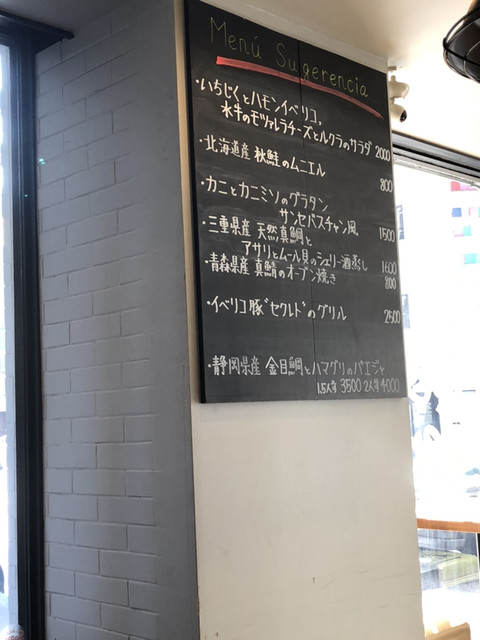 Menú Sugerencia
・いちじくとハモンイベリコ。
水牛のモツァレラチーズとルクラのサラダ 2000
・北海道産 秋鮭のムニエル
800
・カニとカニミソのグラタン
サンセバスチャン風 1500
・三重県産 天然真鯛と
アサリとムール貝のシェリー酒蒸し 1600
・青森県産 真鯖のオーブン焼き 800
・イベリコ豚"セクレト"のグリル 2500
・静岡県産 金目鯛とハマグリのパエジャ
1.5人分 3500 2人分 4000